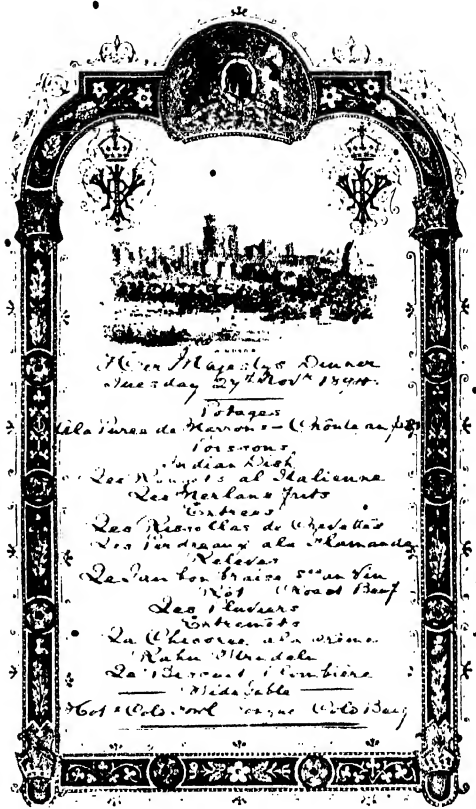 Her Majesty's Dinner
Tuesday 27th Novr 1894.
Potages
A la Puree de Marrons -
Poissons
Indian Dish
Les Rougets al Italienne
Les Merlans frits
Entrees
Les Rissolles de Crevettes
Les Perdreaux ala Flamande
Releves
Le Jambon braise au Vin
Rot Roast Beef
Les Pluviers
Entremets
La Chicoree ala Creme
Le Biscuit
Side Table
Hot & Cold Fowl Tongue Cold Beef